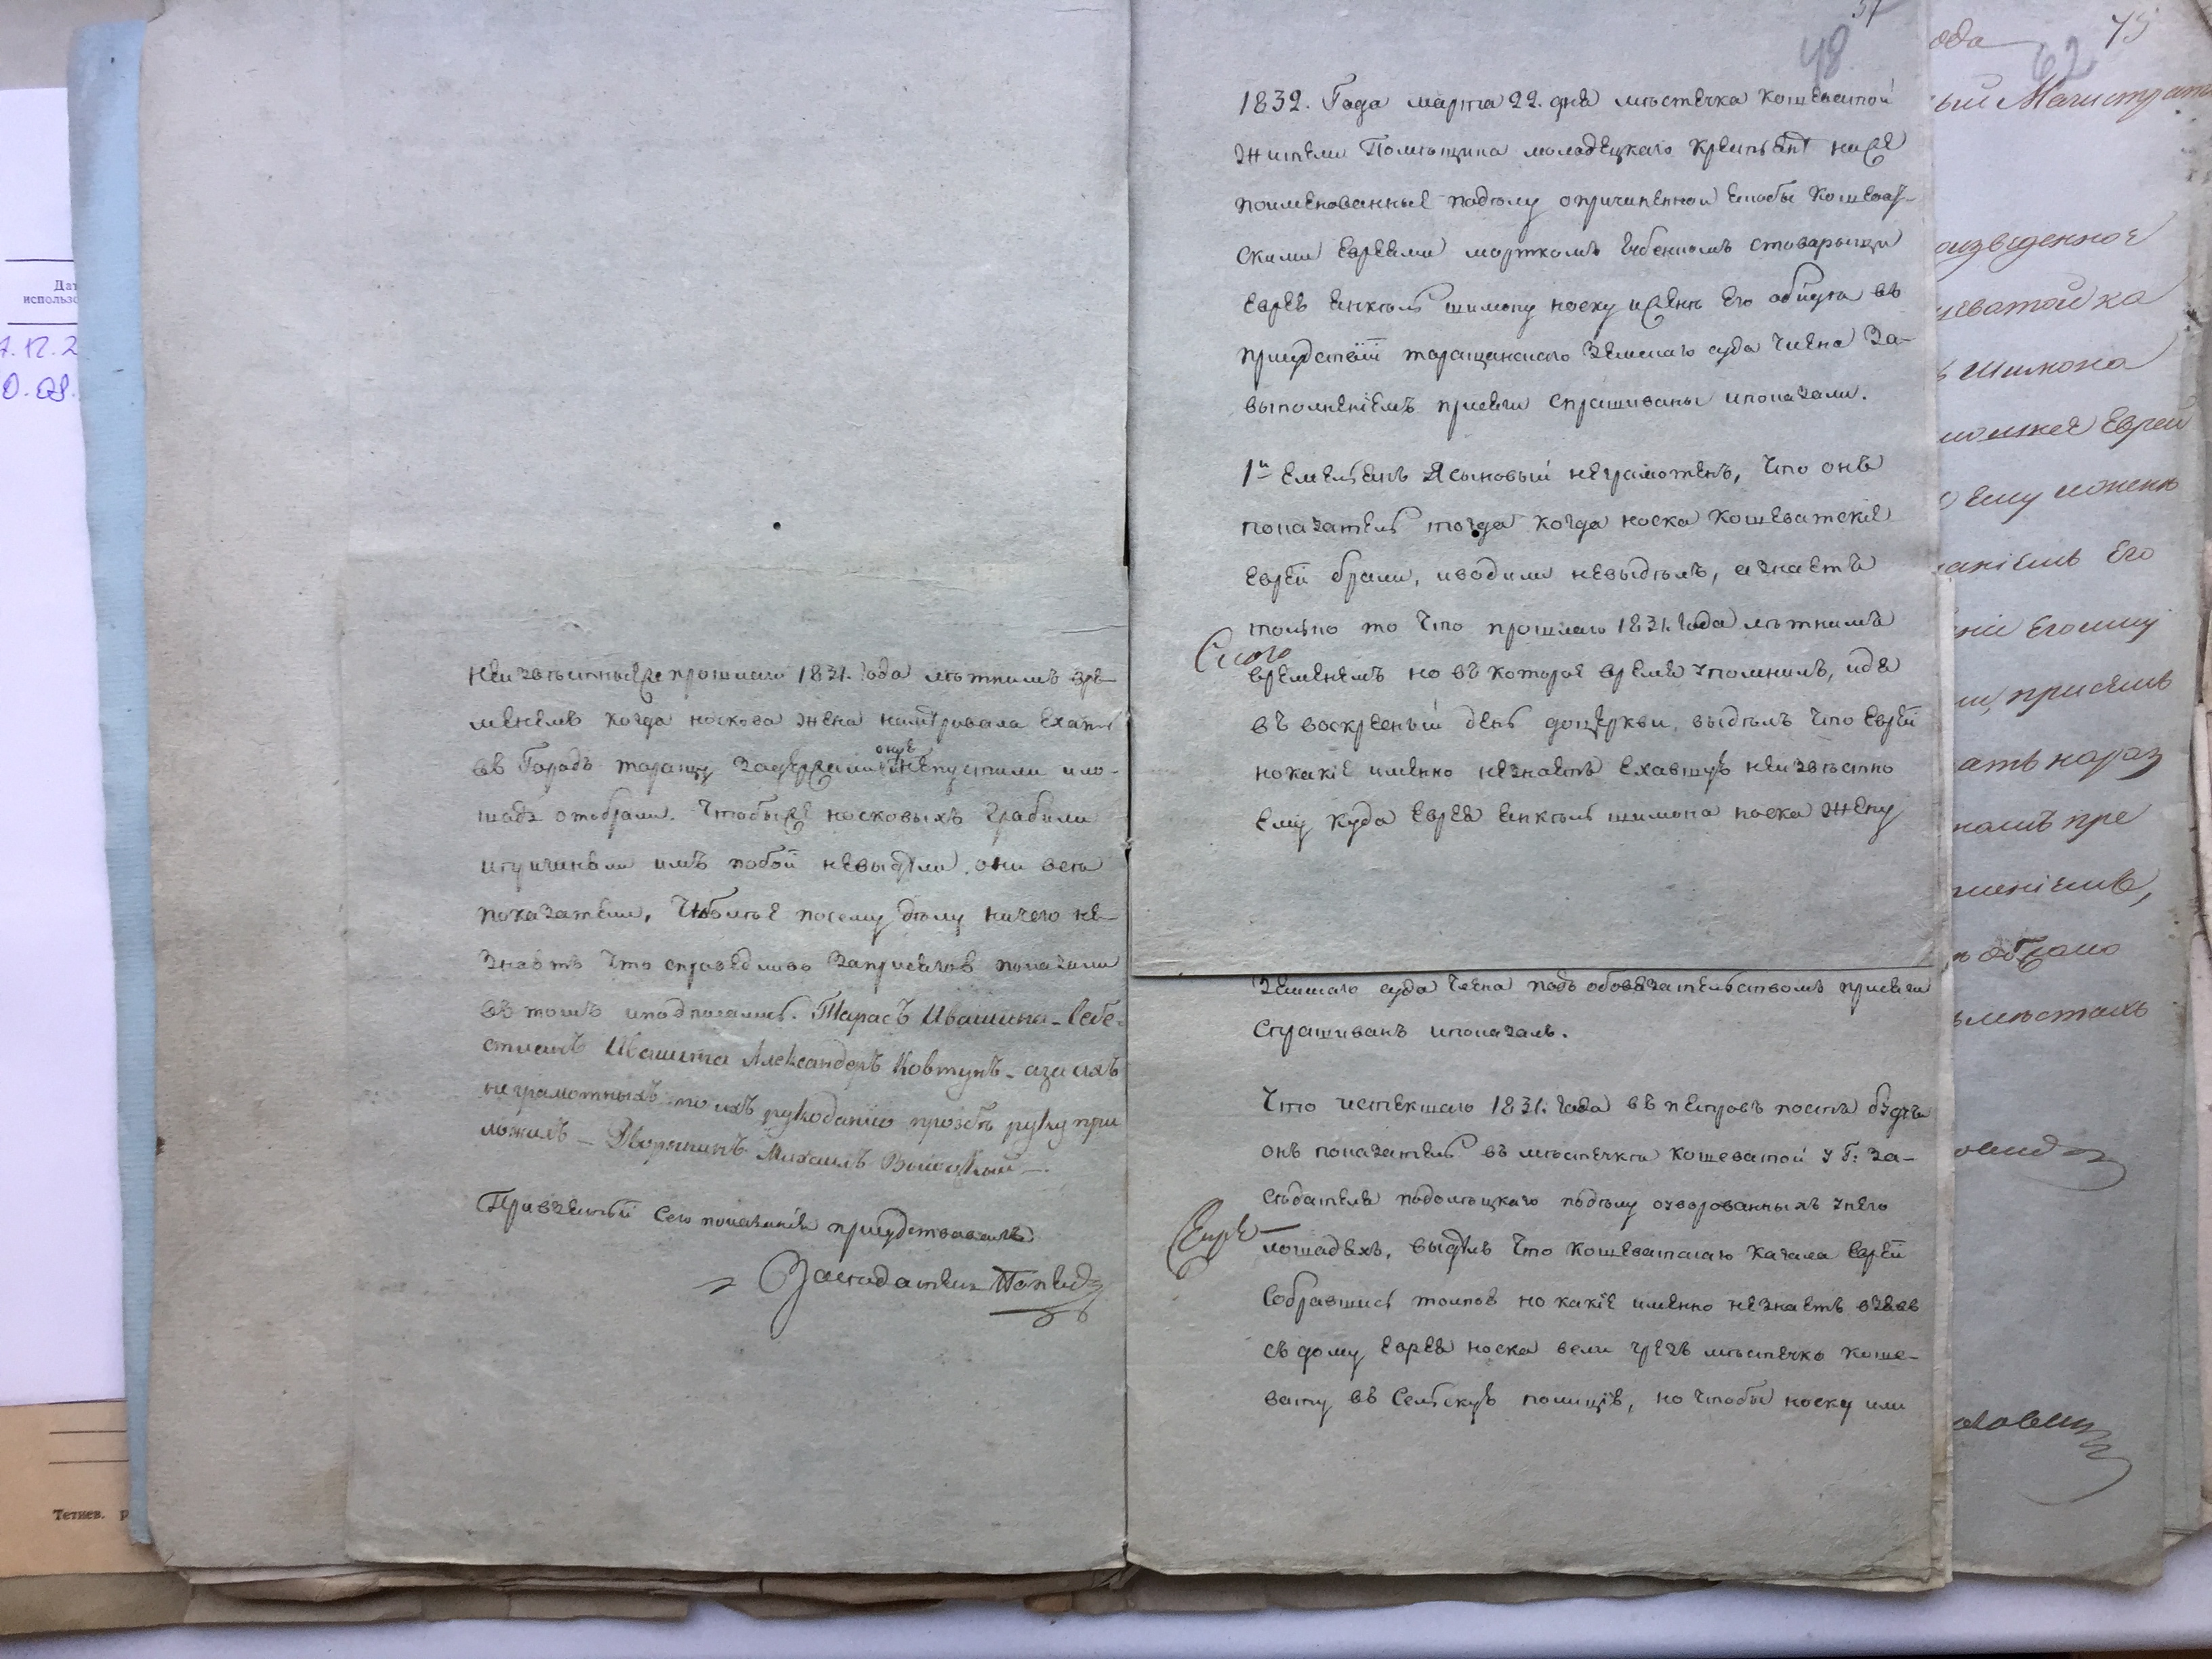 неизвѣстныеже прошлаго 1831. года лѣтнимъ вре-
менемъ когда носкова жена намѣровала ехать
въ Городъ таращу задержали онуе непустили и ло-
шадь отобрали. Чтобыже носковыхъ грабили
и причиняли имъ побой невыдѣли. они всѣ
показатели, Чтоболѣе посему дѣлу ничего не-
знаютъ что справедливо заприсягою показали
въ томъ и подписались. Тарасъ Ивашина - Себе-
стиянъ Ивашина Александеръ Ковтунъ - а за ихъ
неграмотныхъ по ихъ рукоданю прозбѣ руку при
ложилъ - Дворянинъ Михаилъ
При взятьи сего показанія присудствовалъ
Заседатель
48
1832. Года марта 22. дня мѣстечка Кошеватой
Жители Помѣщика молодецкаго крестьяне ниже
поименованные подѣлу опричиненной якобы Кошеват-
скими Евреями морткомъ стоварыщи
Еврею Янкелю шимону носку ижене Его обиду въ
присудствіи таращанскаго Земскаго суда Члена За-
выполненіемъ присяги спрашиваны ипоказали.
1й Емельянъ Ясыновый неграмотенъ, Что онъ
показатель тогда когда носка Кошеватскіе
Еврей брали, иводили невыдѣлъ, а знаетъ
только то Что прошлаго 1831. года лѣтнимъ
временемъ но въ которое время упомнилъ, идя
въ воскресный день доцеркви, выдѣлъ Что Еврей
но какіе именно незнаетъ Ехавшую неизвѣстно
Ему куда Еврея Янкеля шимона носка Жену
Земскаго суда Члена подъ обовязательствомъ присяги
Спрашиванъ ипоказалъ.
Что истекшаго 1831. года въ петровъ постъ будучи
онъ показатель въ мѣстечкѣ Кошеватой у Г: За-
сѣдателя подолѣцкаго подѣлу озворованныхъ унего
лошадяхъ, выдѣлъ Что Кошеватскаго Кагала Еврей
Собравшись толпою но какіе именно незнаетъ взявъ
съ дому Еврея носка вели чрезъ мѣстечко Коше-
вату въ Сельскую полицію, но чтобы носку или
62
75
ый Магистратъ
оизведенное
шеватой ка
Шимона
Еврей
Ему
аніемъ Его
ніи Егошму
присяжъ
ать нараз
намъ пре
неніемъ,
ъ мѣстахъ
Дат
использо
Тетиев. р